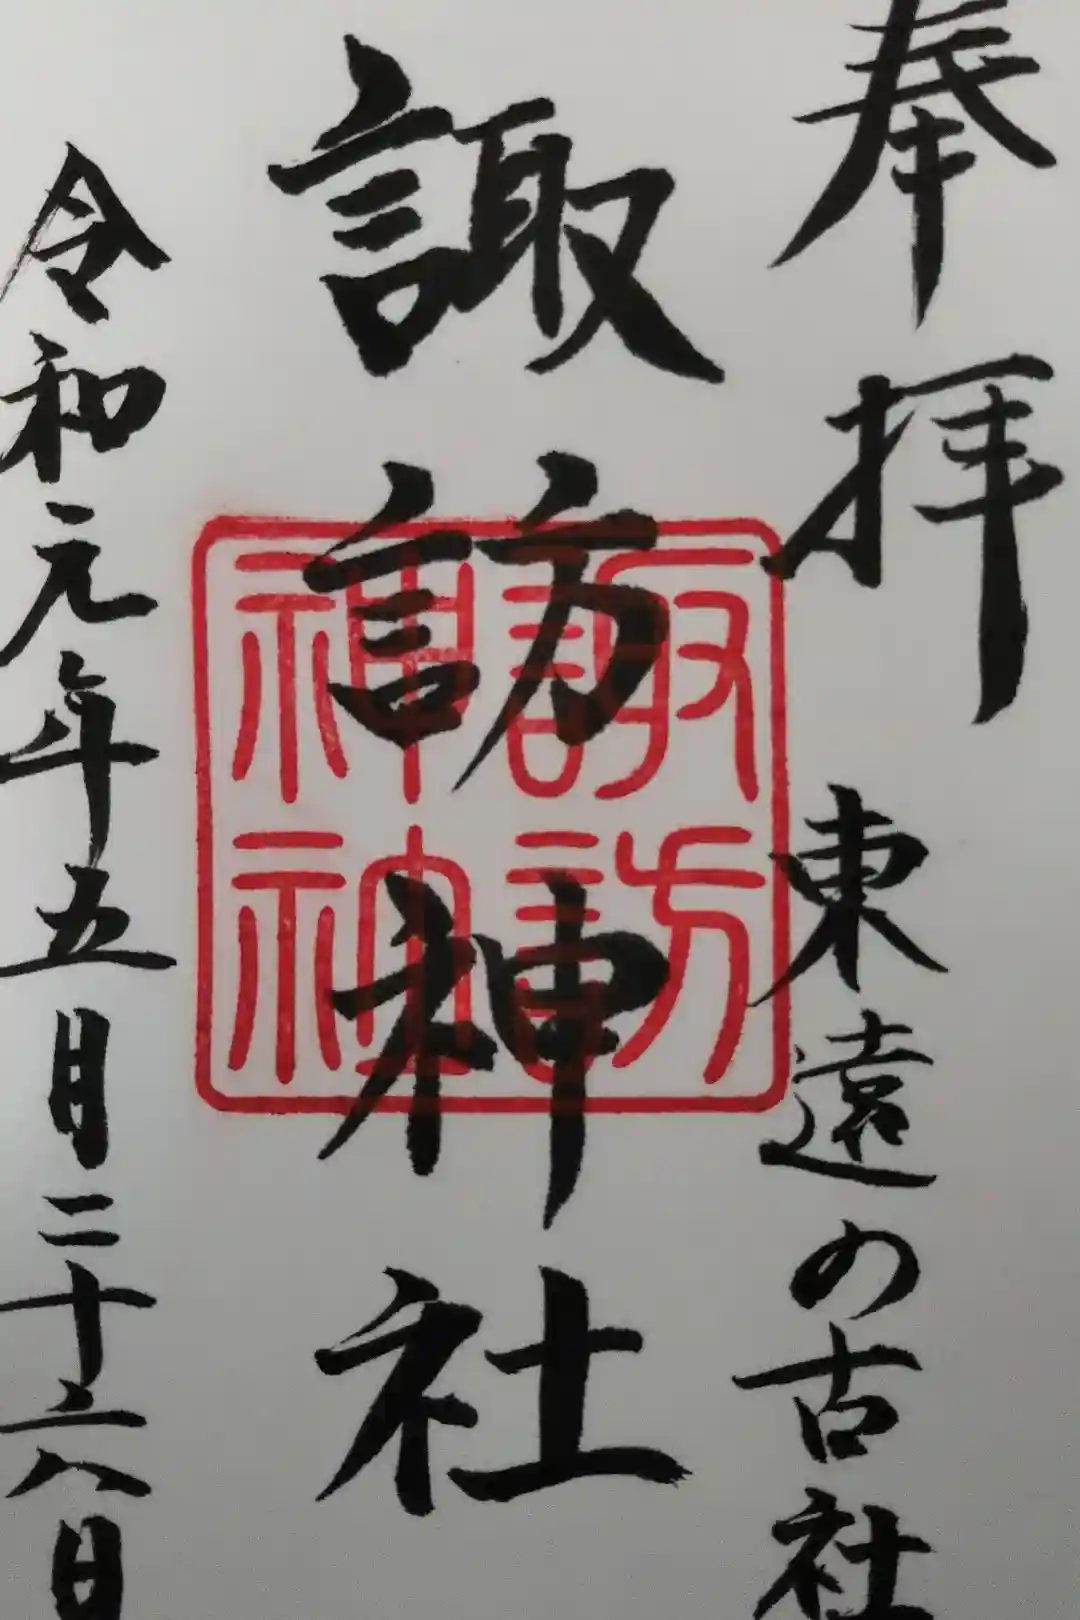 奉拝
東遠の古社
諏訪神社
諏訪
神社
令和元年五月二十六日